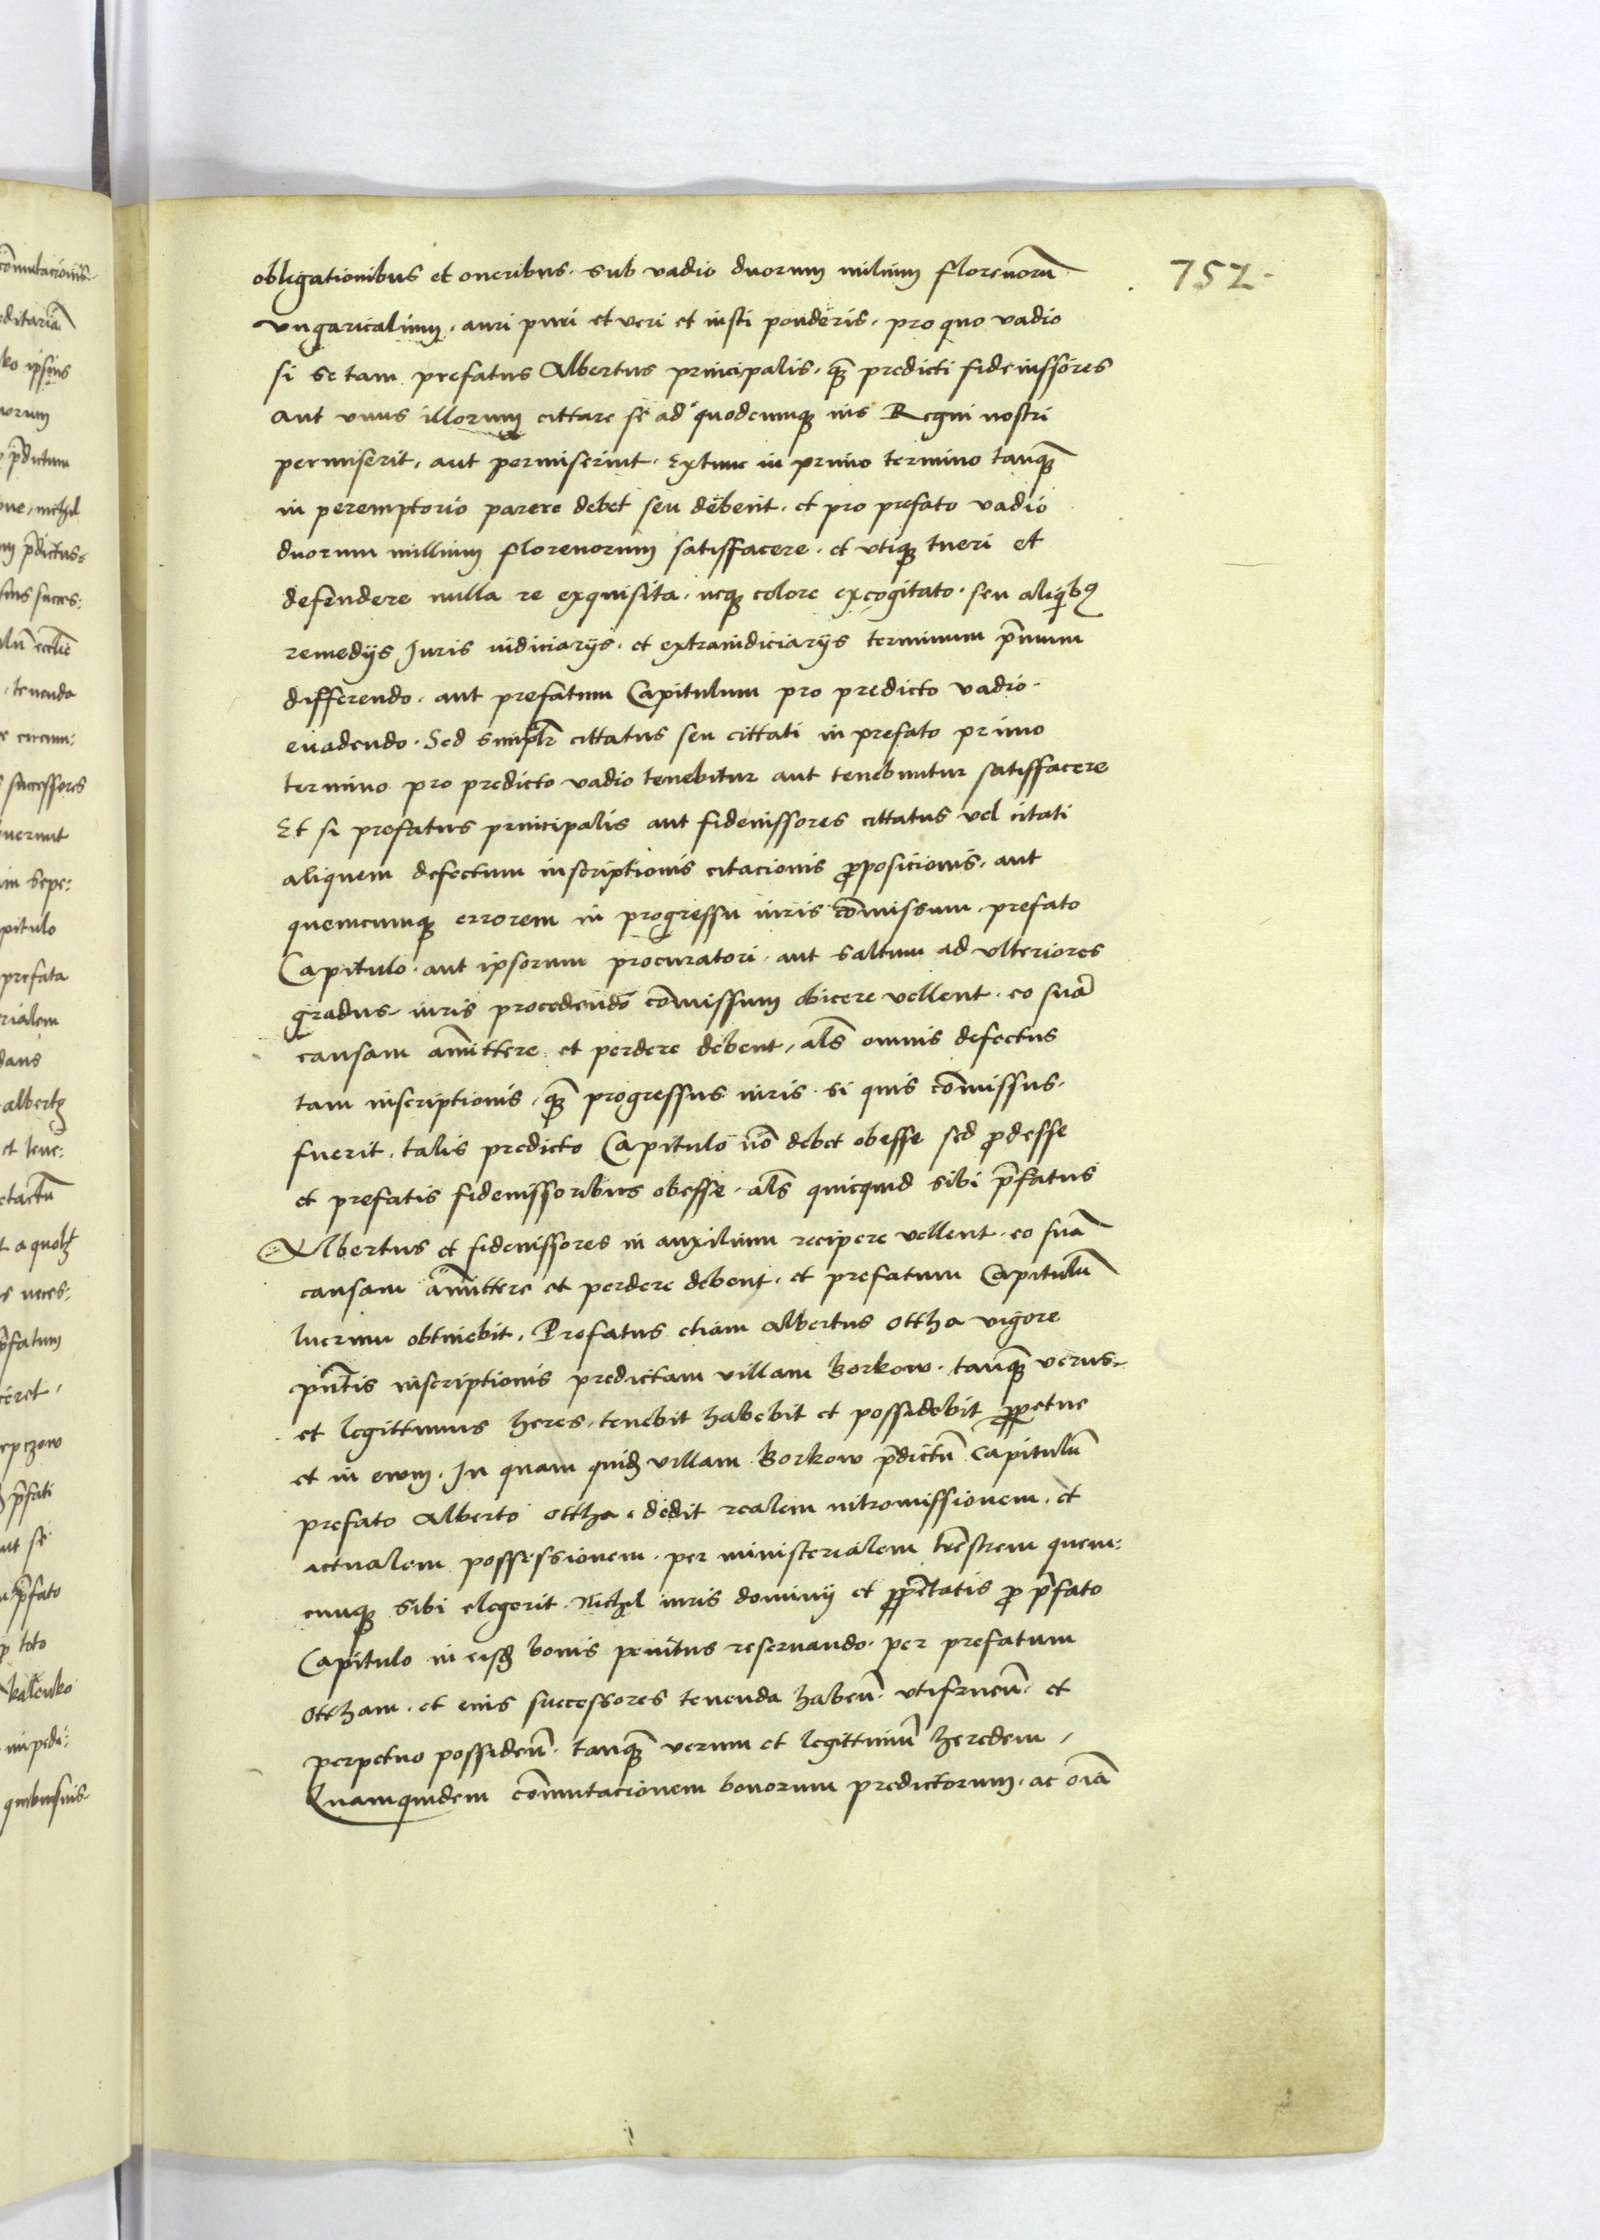 752
obligationibus et oneribus. sub vadio duorum milium florenorũ
vngaricalium. auri puri et veri et iusti ponderis. pro quo vadio
si se tam prefatus Albertus principalis. q̃ predicti fideiussores
aut vnus illorum cittare se ad quodcumq ius Regni nostri
permiserit. aut permiserint. Extunc in primo termino tanq̃
in peremptorio parere debet seu debent. et pro prefato vadio
duorum millium florenorum satisfacere. et vtiq tueri et
defendere nulla re exquisita. neq colore excogitato. seu aliqibꝫ
remedijs Iuris iudiciarijs. et extraiudiciarijs terminum p̃mum
differendo. aut prefatum Capitulum pro predicto vadio.
euadendo. Sed simplr̃ cittatus seu cittati in prefato primo
termino pro predicto vadio tenebitur aut tenebuntur satisfacere
Et si prefatus principalis aut fideiussores cittatus vel citati
aliquem defectum inscriptionis citacionis ꝓposicionis. aut
quemcumq errorem in progressu iuris com̃issum. prefato
Capitulo. aut ipsorum procuratori. aut saltum ad vlteriores
gradus iuris procedendo com̃issum obicere vellent. eo suã
causam am̃ittere et perdere debent, al̃s omnis defectus
tam inscriptionis, q̃ progressus iuris si quis com̃issus.
fuerit. talis predicto Capitulo nõ debet obesse sed ꝓdesse
et prefatis fideiussoribus obesse. al̃s quicquid sibi p̃fatus
Albertus et fideiussores in auxilium recipere vellent. eo suã
causam am̃ittere et perdere debent. et prefatum Capitulũ
lucrum obtinebit. Prefatus etiam Albertus Ottha vigore
pñtis inscriptionis predictam villam Borkow. tanq̃ verus
et legittimus heres. tenebit habebit et possidebit ꝑpetue
et in ewm. In quam quidẽ villam Borkow p̃dictũ Capitulũ
prefato Alberto Ottha. dedit realem intromissionem. et
actualem possessionem. per ministerialem tr̃estrem quem:
cumq sibi elegerit. Nichil iuris dominij et ꝓpr̃etatis ꝓ p̃fato
Capitulo in eisdẽ bonis penitus reseruando. per prefatum
Ottham. et eius successores tenenda habeñ. vtifrueñ. et
perpetuo possideñ. tanq̃ verum et legittimũ heredem.
Quamquidem com̃utacionem bonorum predictorum. ac oĩa